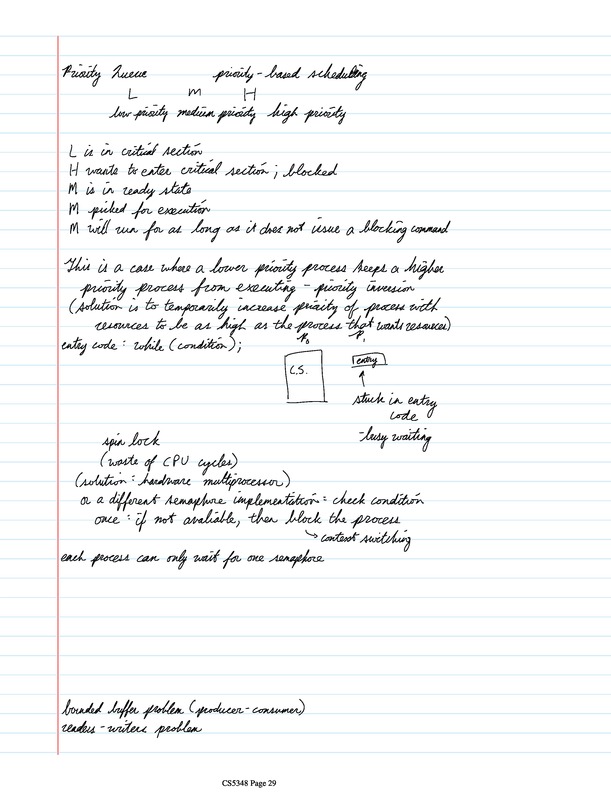 Priority Queue priority-based scheduling
L M H
low priority medium priority high priority
L is in critical section
H wants to enter critical section; blocked
M is in ready state
M picked for execution
M will run for as long as it does not issue a blocking command
This is a case where a lower priority process keeps a higher
priority process from executing - priority inversion
(solution is to temporarily increase priority of process with
resources to be as high as the process that wants resources)
entry code: while (condition);
P₀ P₁
C.S. entry
stuck in entry
code
-busy waiting
spin lock
(waste of CPU cycles)
(solution: hardware multiprocessor)
or a different semaphore implementation: check condition
once: if not avaliable, then block the process
↳ context switching
each process can only wait for one semaphore
bounded buffer problem (producer-consumer)
readers-writers problem
CS5348 Page 29